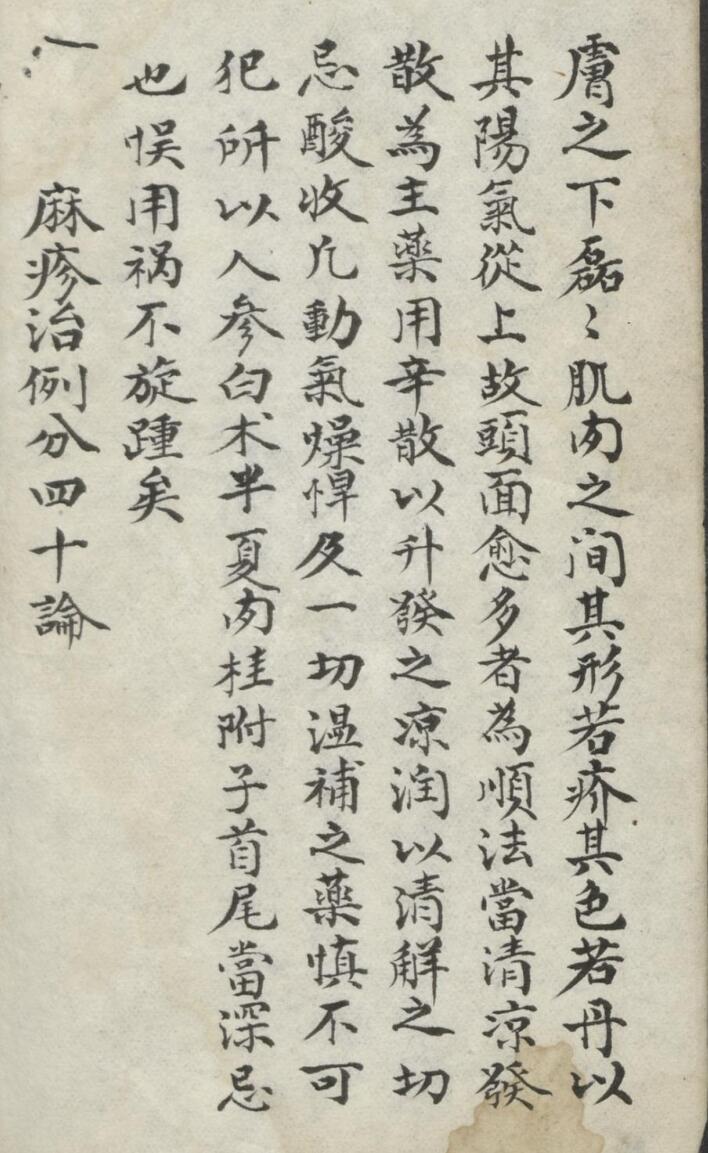 膚之下磊〻肌肉之间其形若疥其色若丹以
其陽氣從上故頭面愈多者為順法當清涼發
散為主藥用辛散以升發之凉润以清解之切
忌酸收凡動氣燥悍及一切温補之藥慎不可
犯所以人參白术半夏肉桂附子首尾當深忌
也悮用祸不旋踵矣
一 麻疹治例分四十論